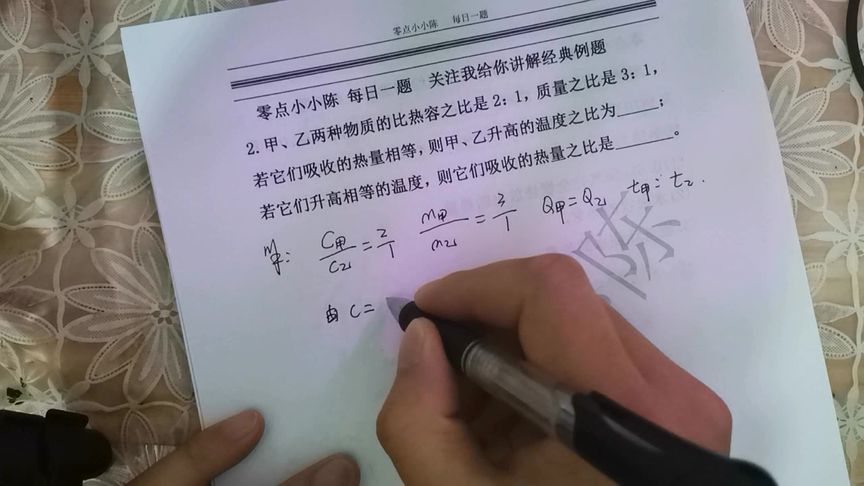 零点小小陈 每日一题
零点小小陈 每日一题 关注我给你讲解经典例题
2. 甲、乙两种物质的比热容之比是 2：1，质量之比是 3：1，
若它们吸收的热量相等，则甲、乙升高的温度之比为_____；
若它们升高相等的温度，则它们吸收的热量之比是______。
C甲/C乙=2/1 m甲/m乙=3/1 Q甲=Q乙 t甲=t乙.
由 C=
陈